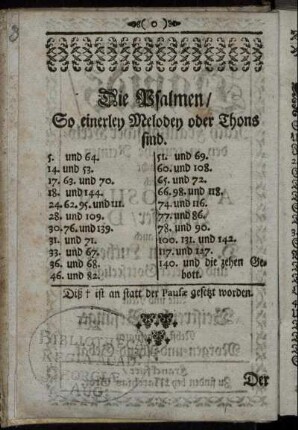 ( o )
Die Psalmen/
So einerley Melodey oder Thons
sind.
5. und 64.
14. und 53.
17. 63. und 70.
18. und 144.
24. 62. 95. und 111.
28. und 109.
30. 76. und 139.
31. und 71.
33. und 67.
36. und 68.
46. und 82.
51. und 69.
60. und 108.
65. und 72.
66. 98. und 118.
74. und 116.
77. und 86.
78. und 90.
100. 131. und 142.
117. und 127.
140. und die zehen Ge-
bott.
Diß † ist an statt der Pausæ gesetzt worden.
Der